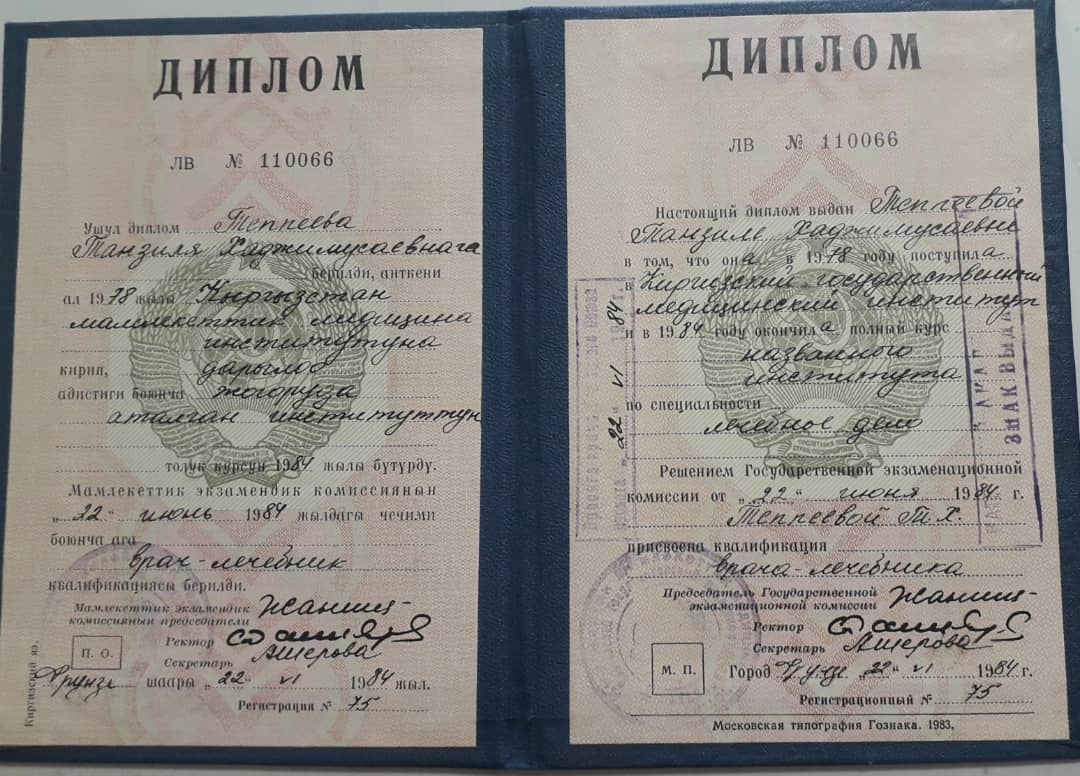 ДИПЛОМ
ЛВ № 110066
Ушул диплом Теппеева
Танзиля Хаджимусаевнага
берилди, анткени
ал 1978 жылы Кыргызстан
мамлекеттик медицина
институтуна
кирип,
адистиги боюнча жогоруда
аталган институттун
толук курсун 1984 жылы бүтүрдү.
Мамлекеттик экзамендик комиссиянын
„22“ июнь 1984 жылдагы чечими
боюнча ага
врач-лечебник
квалификациясы берилди.
Мамлекеттик экзамендик
комиссиянын председатели
Ректор
Секретарь Ашерова
П. О.
Фрунзе шаары „22“ VI 1984 жыл.
Регистрация № 75
Киргизский яз.
ДИПЛОМ
ЛВ № 110066
Настоящий диплом выдан Теппеевой
Танзиле Хаджимусаевне
в том, что она в 1978 году поступила
в Киргизский государственный
медицинский институт
и в 1984 году окончила полный курс
названного
института
по специальности
лечебное дело
Решением Государственной экзаменационной
комиссии от „22“ июня 1984 г.
Теппеевой Т.Х.
присвоена квалификация
врача-лечебника
Председатель Государственной
экзаменационной комиссии
Ректор
Секретарь Ашерова
М. П.
Город „22“ VI 1984 г.
Регистрационный № 75
Московская типография Гознака. 1983.
„22“ VI 1984 г.
ЗНАК ВЫДАН